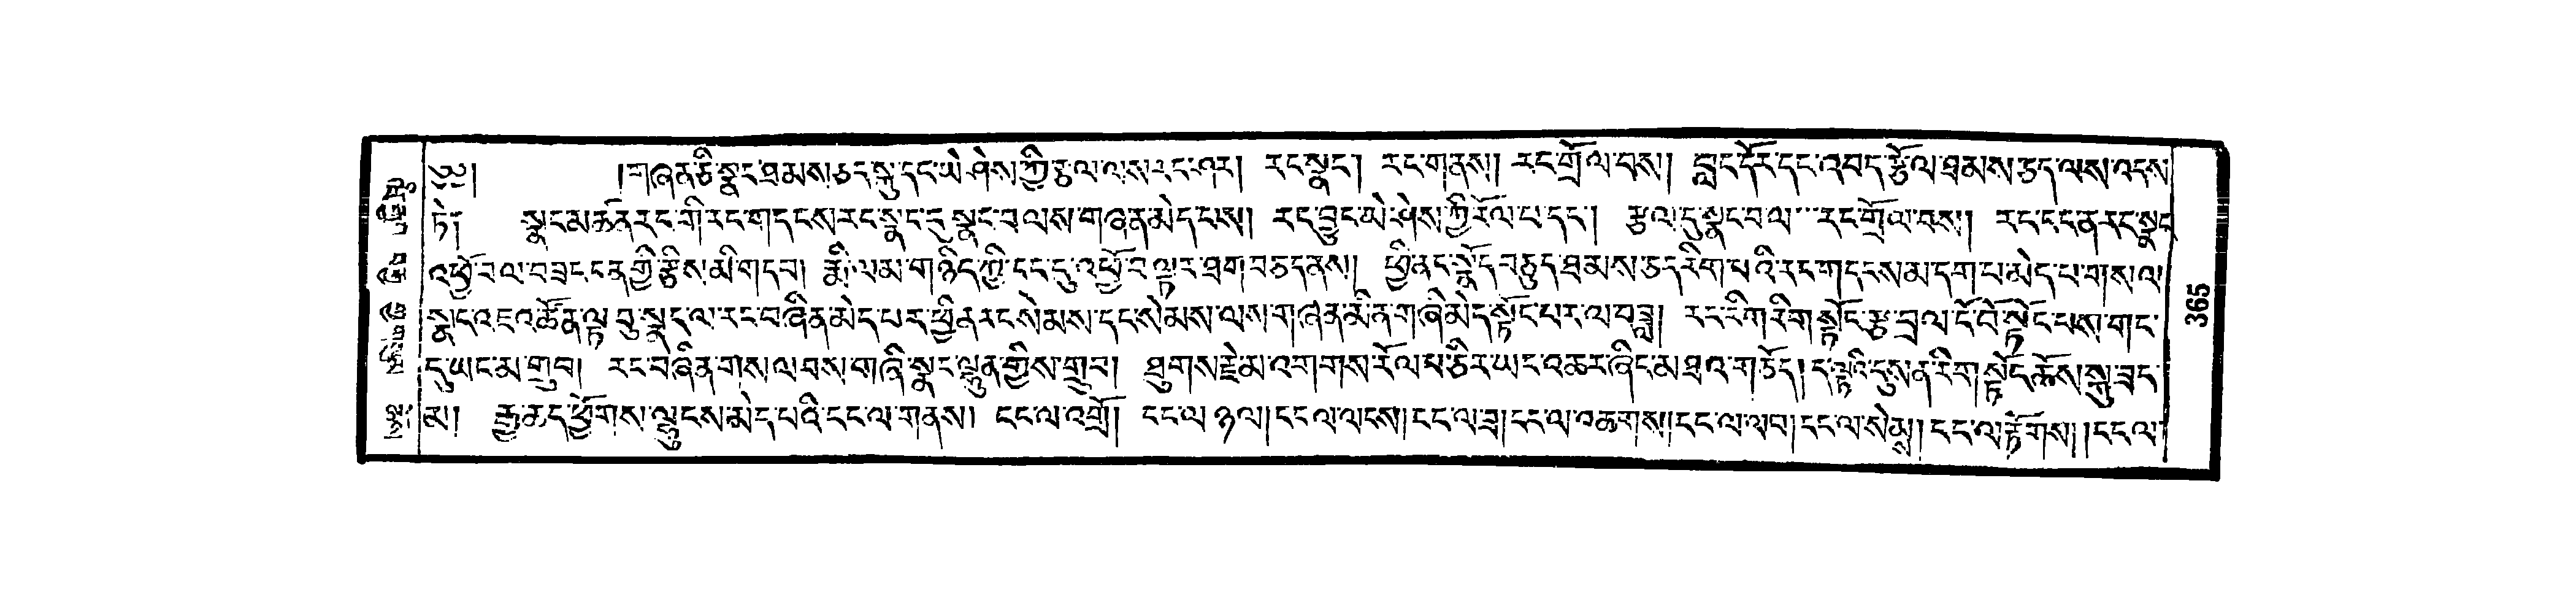 ༄༅། །གཞན་ཅི་སྣང་ཐམས་ཅད་སྐུ་དང་ཡེ་ཤེས་ཀྱི་རྩལ་ལས་རང་ཤར། རང་སྣང་། རང་གནས། རང་གྲོལ་བས། བླང་དོར་དང་འབད་རྩོལ་ཐམས་ཅད་ལས་འདས་
ཏེ༔ སྣང་མཚན་རང་གི་རང་གདངས་རང་སྣང་དུ་སྣང་བ་ལས་གཞན་མེད་པས། རང་བྱུང་ཡེ་ཤེས་ཀྱི་རོལ་པ་དང་། རྩལ་དུ་སྣང་བ་ལ་རང་གྲོལ་བས། རང་ངང་ན་རང་སྣང་
འཕྱོ་བ་ལ་བཟང་ངན་གྱི་རྩིས་མི་གདབ། རྨི་ལམ་གཉིད་ཀྱི་ངང་དུ་འཕྱོ་བ་ལྟར་ཐག་བཅད་ནས། ཕྱི་ནང་སྣོད་བཅུད་ཐམས་ཅད་རིག་པའི་རང་གདངས་མ་དག་པ་མེད་པ་གསལ་
སྣང་འཇའ་ཚོན་ལྟ་བུ་སྣང་ལ་རང་བཞིན་མེད་པར་ཕྱི་ནང་སེམས་དང་སེམས་ལས་གཞན་མིན་གཞི་མེད་སྟོང་པར་ལ་བཟླ། རང་རིག་རིག་སྟོང་རྩ་བྲལ་ངོ་བོ་སྟོང་པས་གང་
དུ་ཡང་མ་གྲུབ། རང་བཞིན་གསལ་བས་གཞི་སྣང་ལྷུན་གྱིས་གྲུབ། ཐུགས་རྗེ་མ་འགགས་རོལ་པ་ཅིར་ཡང་འཆར་ཞིང་མཐའ་གཅོད། ད་ལྟའི་དུས་ན་རིག་སྟོང་ཆོས་སྐུ་ཟང་
མ། རྒྱ་ཆད་ཕྱོགས་ལྷུངས་མེད་པའི་ངང་ལ་གནས། ངང་ལ་འགྲོ། ངང་ལ་ཉལ། ངང་ལ་ལངས། ངང་ལ་ཟ། ངང་ལ་འཆགས། ངང་ལ་ལབ། ངང་ལ་སེམས། ངང་ལ་རྟོགས། །ངང་ལ་
365